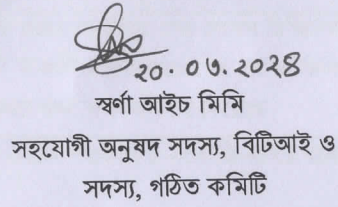 ২০.০৩.২০২৪
স্বর্ণা আইচ মিমি
সহযোগী অনুষদ সদস্য, বিটিআই ও
সদস্য, গঠিত কমিটি